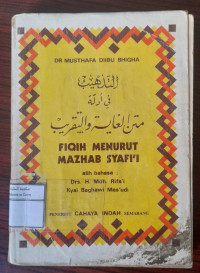 DR MUSTHAFA DIIBU BHIGHA
التذهيب
في أدلة
متن الغاية والتقريب
FIQIH MENURUT
MAZHAB SYAFI'I
alih bahasa
Drs. H. Moh. Rifa'i
Kyai Baghawi Mas'udi
PENERBIT CAHAYA INDAH SEMARANG